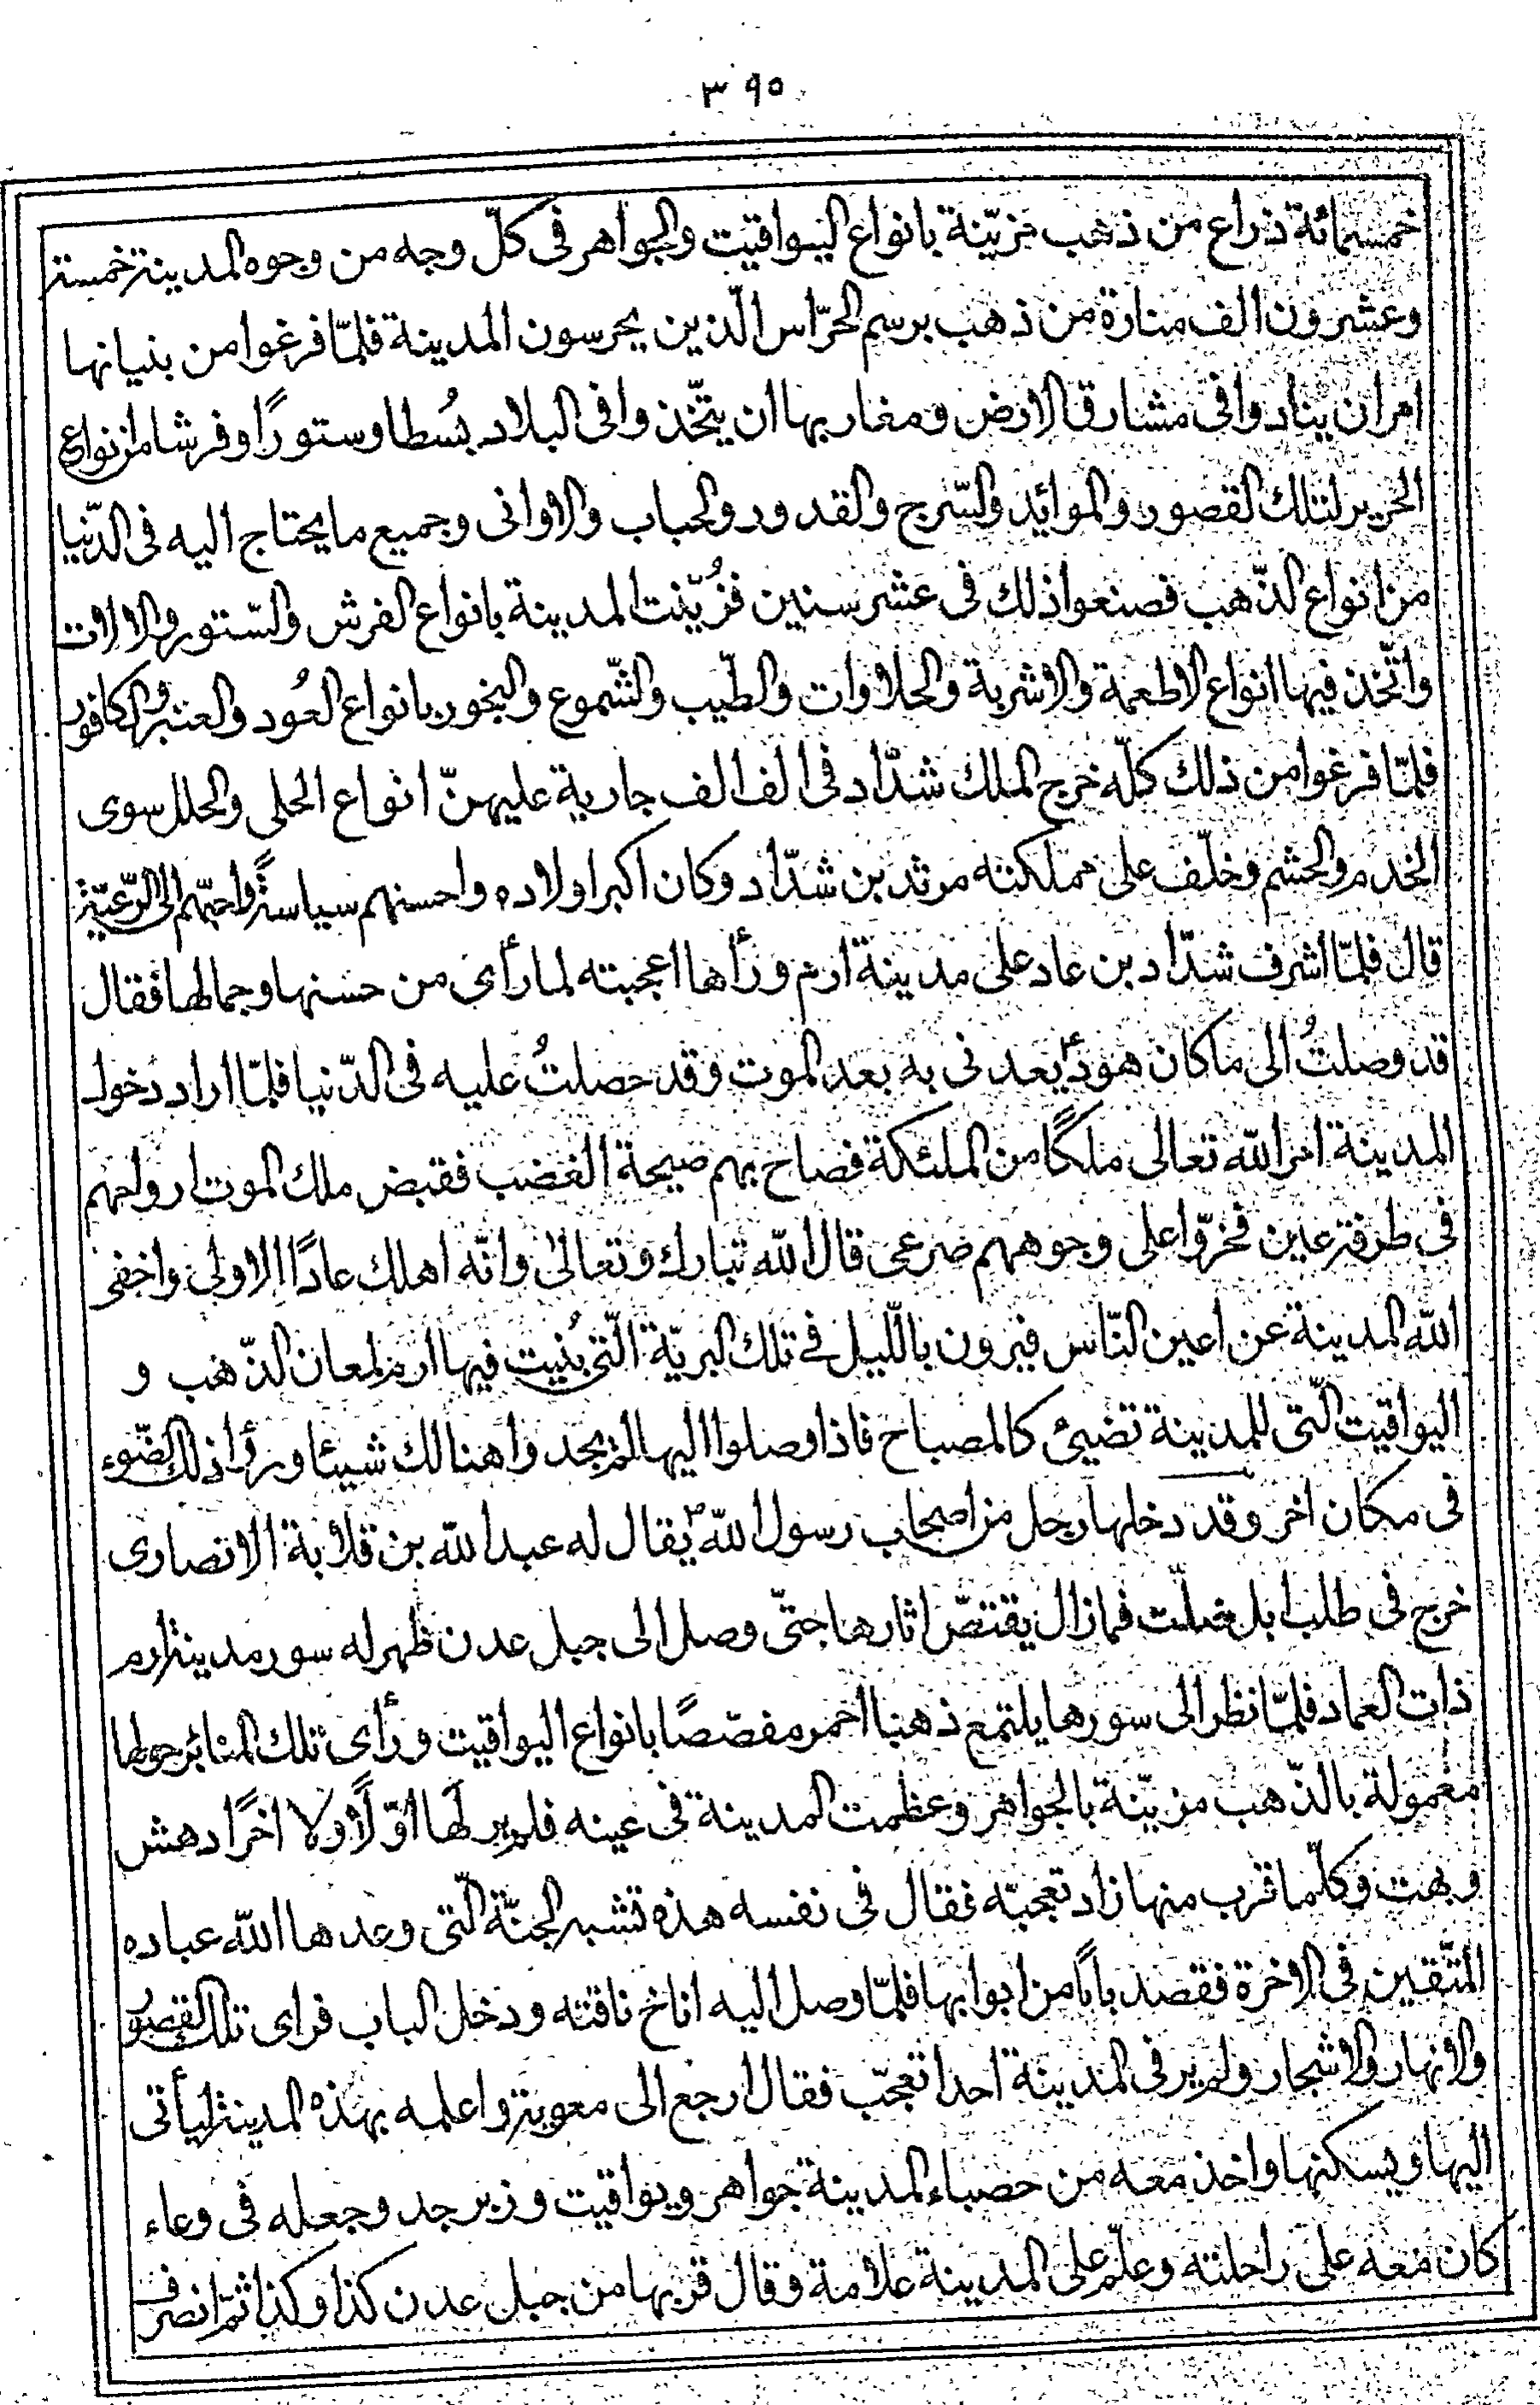 ٣٩٥
خمسمائة ذراع من ذهب مزيّنة بانواع اليواقيت والجواهر فى كلّ وجه من وجوه المدينة خمسة
وعشرون الف منارة من ذهب برسم الحرّاس الّذين يحرسون المدينة فلمّا فرغوا من بنيانها
امر ان ينادوا فى مشارق الارض ومغاربها ان يتّخذوا فى البلاد بُسطا وستورًا وفرشا من انواع
الحرير لتلك القصور والموائد والسّرج والقدور والحباب والاوانى وجميع ما يحتاج اليه فى الدّنيا
من انواع الذّهب فصنعوا ذلك فى عشر سنين فزُيّنت المدينة بانواع الفرش والسّتور والالات
واتّخذ فيها انواع الاطعمة والاشربة والحلاوات والطّيب والشّموع والبخور بانواع العُود والعنبر والكافور
فلمّا فرغوا من ذلك كلّه خرج الملك شدّاد فى الف الف جارية عليهنّ انواع الحلى والحلل سوى
الخدم والحشم وخلّف على مملكته مرثد بن شدّاد وكان اكبر اولاده واحسنهم سياسةً واحبّهم الى الرّعيّة
قال فلمّا اشرف شدّاد بن عاد على مدينة ارم ورأها اعجبته لما رأى من حسنها وجمالها فقال
قد وصلتُ الى ما كان هودٌ يعدنى به بعد الموت وقد حصلتُ عليه فى الدّنيا فلمّا اراد دخول
المدينة امر الله تعالى ملكًا من الملئكة فصاح بهم صيحة الغضب فقبض ملك الموت ارواحهم
فى طرفة عين فخرّوا على وجوههم صرعى قال الله تبارك وتعالى وانّه اهلك عادًا الاولى واخفى
الله المدينة عن اعين النّاس فيرون باللّيل فى تلك البريّة الّتى بُنيت فيها ارم لمعان الذّهب و
اليواقيت الّتى للمدينة تضيئ كالمصباح فاذا وصلوا اليها لم يجدوا هنالك شيئا ورأوا ذلك الضّوء
فى مكان اخر وقد دخلها رجل من اصحاب رسول الله ص يقال له عبد الله بن قلابة الانصارى
خرج فى طلب ابل ضلّت فما زال يقتصّ اثارها حتّى وصل الى جبل عدن ظهر له سور مدينة ارم
ذات العماد فلمّا نظر الى سورها يلتمع ذهبا احمر مفصّصًا بانواع اليواقيت ورأى تلك المنائر حولها
معمولة بالذّهب مزيّنة بالجواهر وعظمت المدينة فى عينه فلم ير لها اوّلًا ولا اخرًا دهش
وبهت وكلّما قرب منها زاد تعجّبه فقال فى نفسه هذه تشبه الجنّة الّتى وعدها الله عباده
المتّقين فى الاخرة فقصد بابًا من ابوابها فلمّا وصل اليه اناخ ناقته ودخل الباب فراى تلك القصور
والانهار والاشجار ولم ير فى المدينة احدا تعجّب فقال ارجع الى معوية واعلمه بهذه المدينة ليأتى
اليها ويسكنها واخذ معه من حصباء المدينة جواهر ويواقيت وزبرجد وجعله فى وعاء
كان معه على راحلته وعلّم على المدينة علامة وقال قربها من جبل عدن كذا وكذا ثمّ انصرف